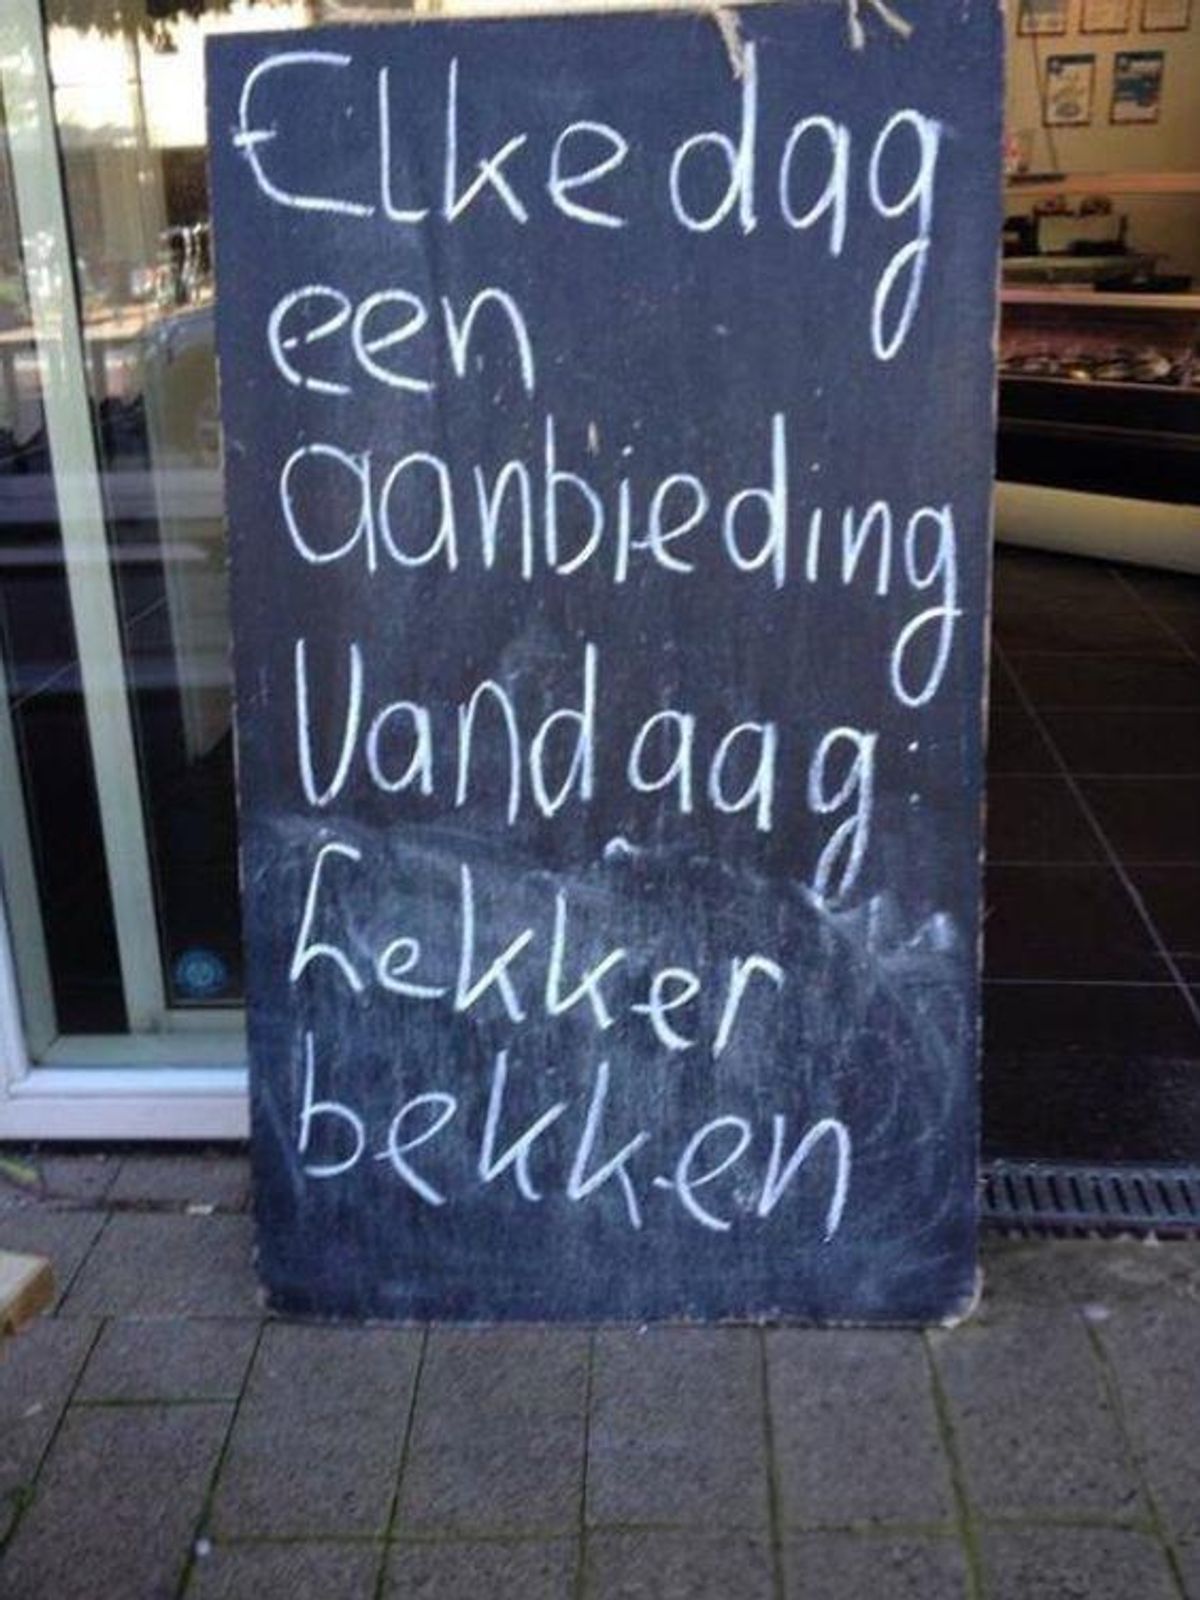 Elke dag
een
aanbieding
Vandaag:
Lekker
bekken